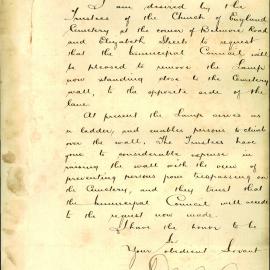 I am desired by the
Trustees of the Church of England
Cemetery at the corner of Belmore Road
and Elizabeth Street to request
that the Municipal Council will
be pleased to remove the Lamp
now standing close to the Cemetery
wall, to the opposite side of the
lane.
At present the Lamp serves as
a ladder, and enables persons to climb
over the wall. The Trustees have
gone to considerable expense in
raising the wall with the view of
preventing persons from trespassing on
the Cemetery, and they trust that
the Municipal Council will accede
to the request now made.
I have the honor to be
Your obedient Servant